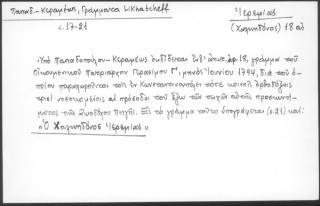 Παπαδ. - Κεραμέως, Γράμματα Likhatcheff
σ. 17-21
Ἱερεμίας
(Χαλκηδόνος) 18 αἰ.
Ὑπὸ Παπαδοπούλου - Κεραμέως ἐκδίδεται ἐνθ' ἀνωτ. ἀρ. 18, γράμμα τοῦ
Οἰκουμενικοῦ Πατριάρχου Γερασίμου Γ', μηνὸς Ἰουνίου 1794, διὰ τοῦ ὁ-
ποίου παραχωροῦνται τοῖς ἐν Κωνσταντινουπόλει τότε κοινοῖς ὀρθοδόξοις
τρισὶ νοσοκομείοις αἱ πρόσοδοι τοῦ ἔξω τῆς πύλης αὐτῆς προσκυνή-
ματος τῆς Ζωοδόχου Πηγῆς. Εἰς τὸ γράμμα τοῦτο ὑπογράφεται (σ. 21) καί:
"Ὁ Χαλκηδόνος Ἱερεμίας"